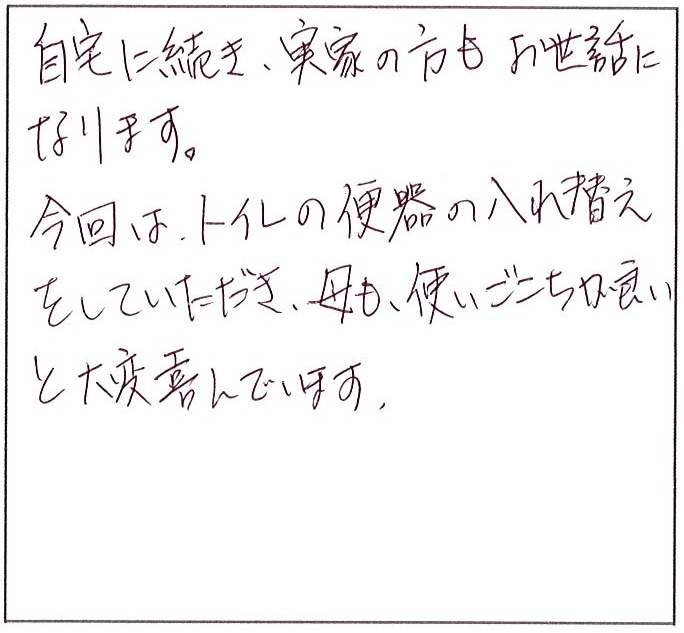 自宅に続き、実家の方もお世話に
なります。
今回は、トイレの便器の入れ替え
をしていただき、母も、使いごこちが良い
と大変喜んでいます。